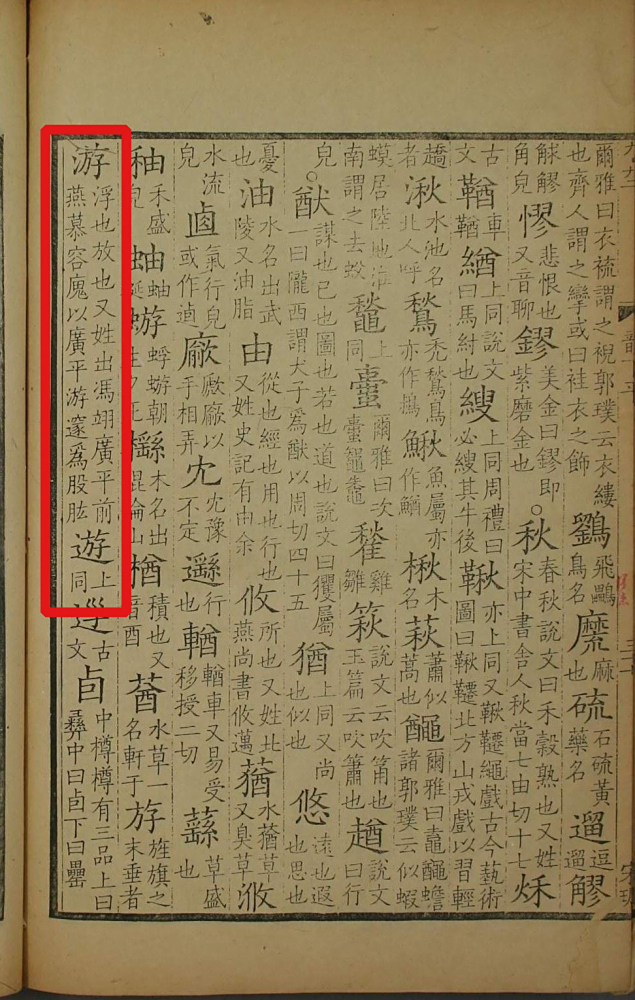 爾雅曰衣裗謂之䘽郭璞云衣縷也齊人謂之攣或曰袿衣之飾鷚飛鸓鳥名麻也硫石硫黃藥名遛逗遛䚧
觓䚧角皃憀悲恨也又音聊鏐美金曰鏐即紫磨金也○秋春秋說文曰禾穀熟也又姓宋中書舍人秋當七由切十七秌
古文鞧車鞧緧上同說文曰馬紂也䋺上同周禮曰必䋺其牛後鞦亦上同又鞦韆繩戲古今藝術圖曰鞦韆北方山戎戲以習輕
趫者湫水池名北人呼鶖禿鶖鳥亦作鰍魚屬亦作鰌楸木名萩蕭似蒿也䵸爾雅曰鼁䵸蟾諸郭璞云似蝦
蟆居陸地淮南謂之去蚥上同爾雅曰次蟗鼅鼄雞雛篍說文云吹筩也玉篇云吹簫也趥說文曰行
皃○猷謀也已也圖也若也道也說文曰玃屬一曰隴西謂犬子爲猷以周切四十五猶上同又尚也似也悠遠也遐也思也
憂也油水名出武陵又油脂由從也經也用也行也又姓史記有由余攸所也又姓北燕尚書攸邁蕕水蕕草又臭草浟
水流皃卣氣行皃或作逌以手相弄冘冘豫不定行也輶輶車又易受移授二切蘨草盛也
秞禾盛皃蚰蚰蜒蝣蜉蝣朝生夕死櫾木名出崐崘山䅎積也又音酉蕕水草一名軒于斿旌旗之末垂者
游浮也放也又姓出馮翊廣平前燕慕容廆以廣平游邃爲股肱遊上同逕古文卣中樽樽有三品上曰彝中曰卣下曰罍